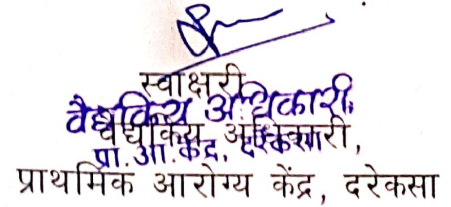 स्वाक्षरी
वैद्यकिय अधिकारी,
वैद्यकिय अधिकारी,
प्रा. आ. केंद्र, दरेकसा
प्राथमिक आरोग्य केंद्र, दरेकसा